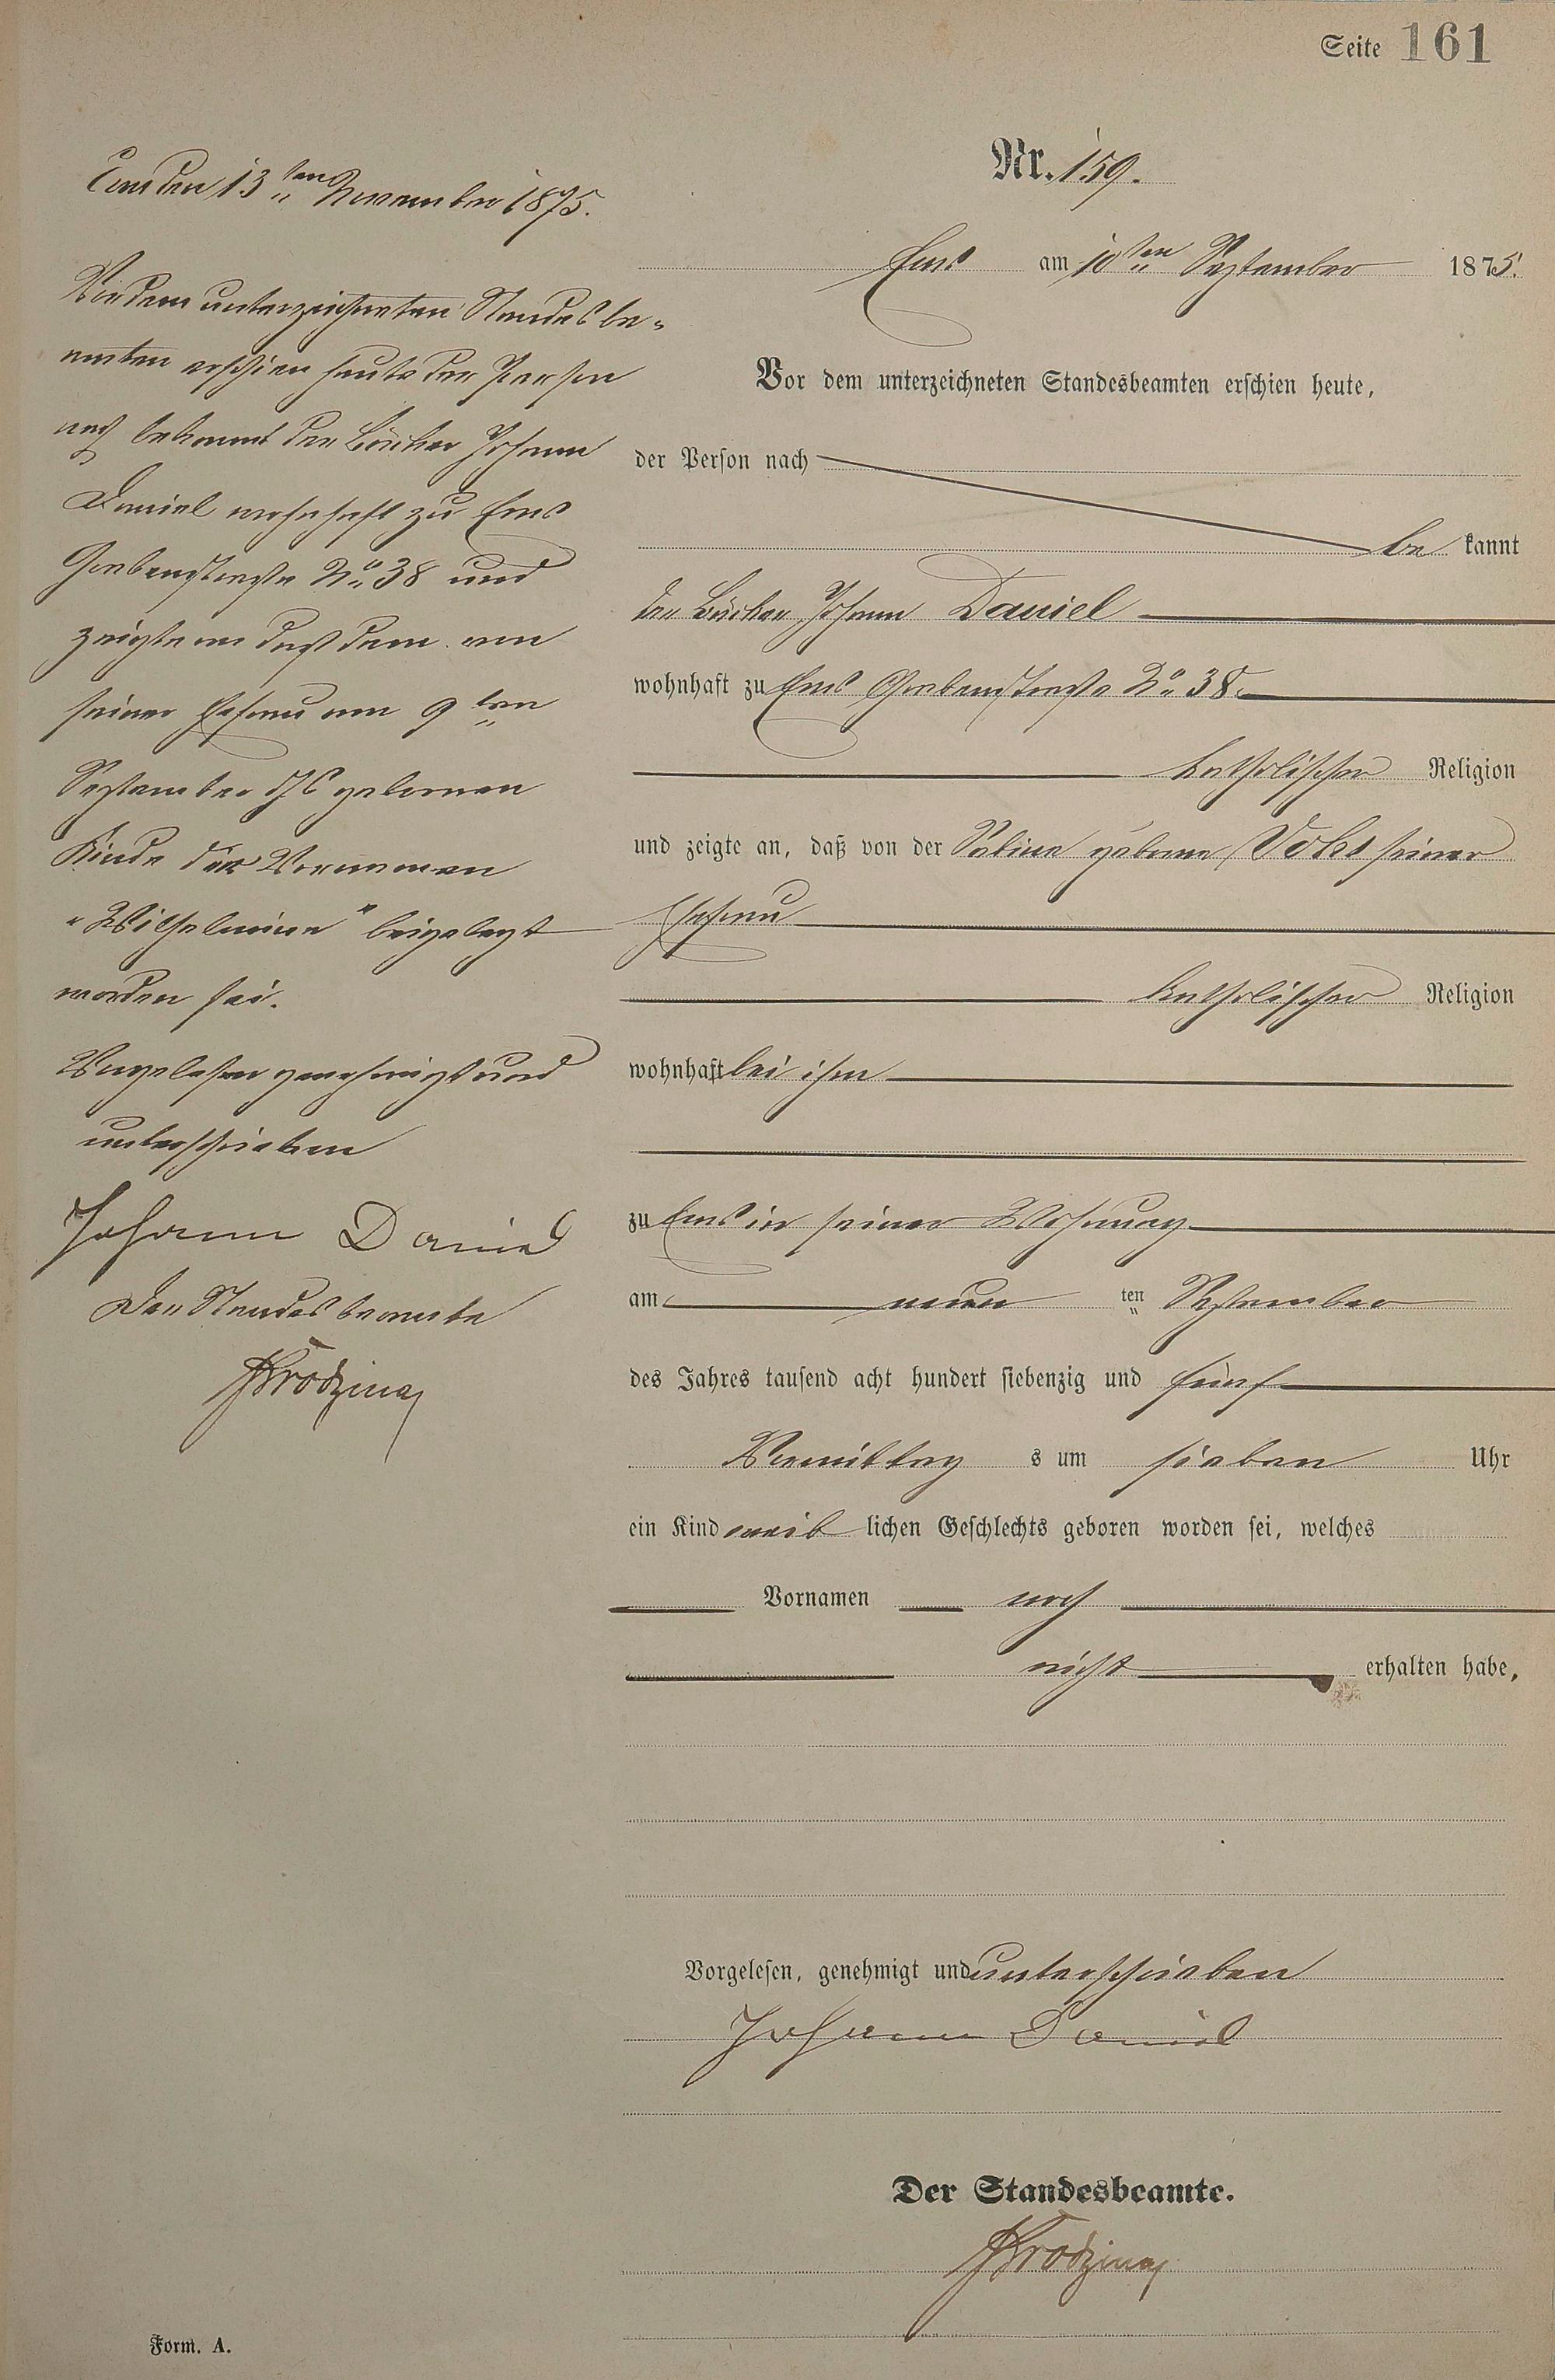 Seite 161
Nr. 159.
Ems am 10ten September 1875.
Vor dem unterzeichneten Standesbeamten erschien heute,
der Person nach
be kannt
der Bäcker Johann Daniel
wohnhaft zu Ems Grabenstraße No. 38.
katholischer Religion
und zeigte an, daß von der Sabina geborne Vohs seiner
Ehefrau
katholischer Religion
wohnhaft bei ihm
zu Ems in seiner Wohnung
am neun ten September
des Jahres tausend acht hundert siebenzig und fünf
Vormittag s um sieben Uhr
ein Kind weib lichen Geschlechts geboren worden sei, welches
Vornamen noch
nicht erhalten habe,
Vorgelesen, genehmigt und unterschrieben
Johann Daniel
Der Standesbeamte.
Form. A.
Ems den 13ten November 1875.
Vor dem unterzeichneten Standesbe-
amten erschien heute der Person
nach bekannt der Bäcker Johann
Daniel wohnhaft zu Ems
Grabenstraße No. 38 und
zeigte an daß dem von
seiner Ehefrau am 9ten
September d Js geborenen
Kinde der Vornamen
"Wilhelmine" beigelegt
worden sei.
Vorgelesen genehmigt und
unterschrieben
Johann Daniel
Der Standesbeamte